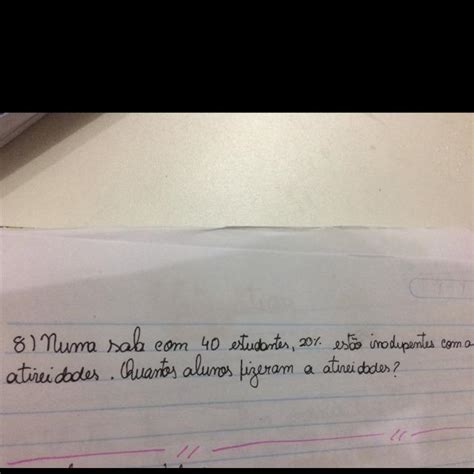 8) Numa sala com 40 estudantes, 20% estão inadipentes com a
atividades. Quantos alunos fizeram a atividades?